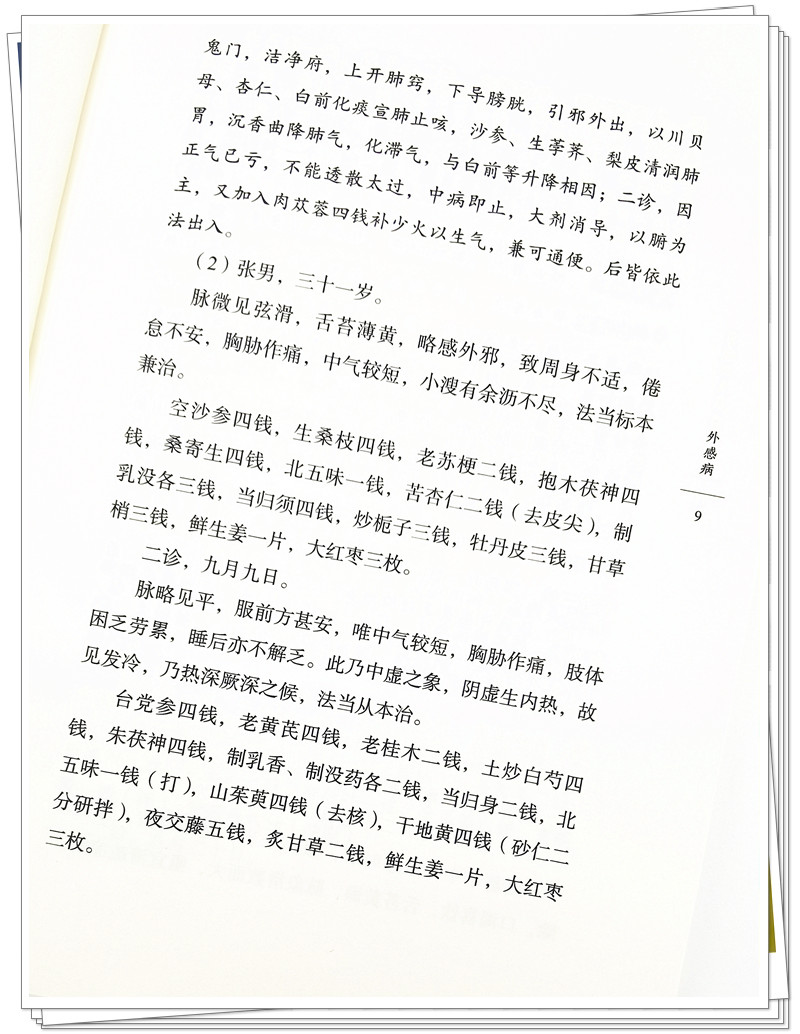 鬼门，洁净府，上开肺窍，下导膀胱，引邪外出，以川贝
母、杏仁、白前化痰宣肺止咳，沙参、生荸荠、梨皮清润肺
胃，沉香曲降肺气，化滞气，与白前等升降相因；二诊，因
正气已亏，不能透散太过，中病即止，大剂消导，以腑为
主，又加入肉苁蓉四钱补少火以生气，兼可通便。后皆依此
法出入。
（2）张男，三十一岁。
脉微见弦滑，舌苔薄黄，略感外邪，致周身不适，倦
怠不安，胸胁作痛，中气较短，小溲有余沥不尽，法当标本
兼治。
空沙参四钱，生桑枝四钱，老苏梗二钱，抱木茯神四
钱，桑寄生四钱，北五味一钱，苦杏仁二钱（去皮尖），制
乳没各三钱，当归须四钱，炒栀子三钱，牡丹皮三钱，甘草
梢三钱，鲜生姜一片，大红枣三枚。
二诊，九月九日。
脉略见平，服前方甚安，唯中气较短，胸胁作痛，肢体
困乏劳累，睡后亦不解乏。此乃中虚之象，阴虚生内热，故
见发冷，乃热深厥深之候，法当从本治。
台党参四钱，老黄芪四钱，老桂木二钱，土炒白芍四
钱，朱茯神四钱，制乳香、制没药各二钱，当归身二钱，北
五味一钱（打），山茱萸四钱（去核），干地黄四钱（砂仁二
分研拌），夜交藤五钱，炙甘草二钱，鲜生姜一片，大红枣
三枚。
外感病
9